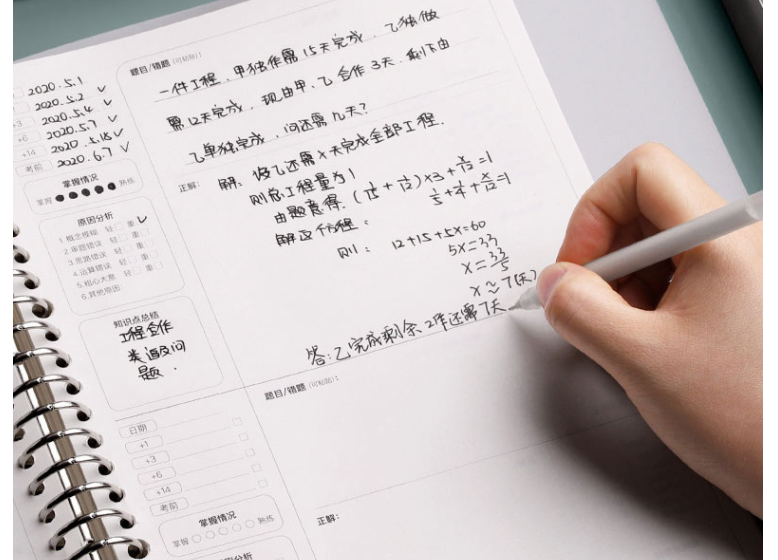 2020.5.1
2020.5.2 ✓
+3 2020.5.4 ✓
+6 2020.5.7 ✓
+14 2020.5.15 ✓
考前 2020.6.7 ✓
掌握情况
掌握 熟练
原因分析
1.概念模糊 轻 重 ✓
2.审题错误 轻 重
3.思路错误 轻 重
4.运算错误 轻 重
5.粗心大意 轻 重
6.其他原因:
知识点总结
工程合作
类追及问
题.
题目/错题(可粘贴):
一件工程,甲独作需15天完成,乙独做
需12天完成,现由甲、乙合作3天,剩下由
乙单独完成,问还需几天?
正解:
解:设乙还需x天完成全部工程.
则总工程量为1
由题意得:(1/15+1/12)×3+x/12=1
解这个方程:
1/5+1/4+x/12=1
则: 12+15+5x=60
5x=33
x=33/5
x≈7(天)
答:乙完成剩余工作还需7天
日期
+1
+3
+6
+14
考前
掌握情况
掌握 熟练
题目/错题(可粘贴):
正解: